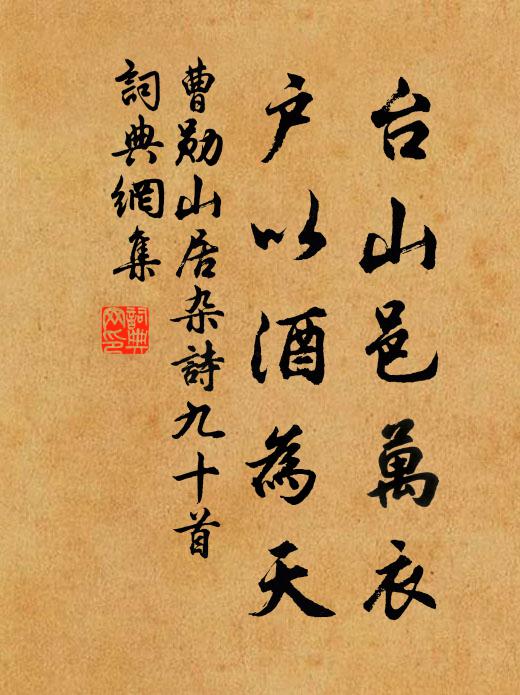 台山邑萬衣
户以酒為天
曹勛山居杂詩九十首
詞典網集
詞典網印